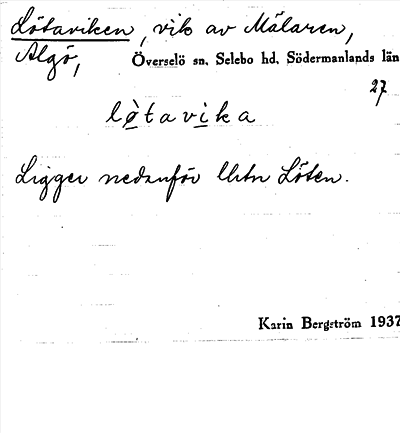 Lötaviken, vik av Mälaren,
Algö, Överselö sn, Selebo hd, Södermanlands län
27
lø̀tavika
Ligger nedanför Utn Löten.
Karin Bergström 1937